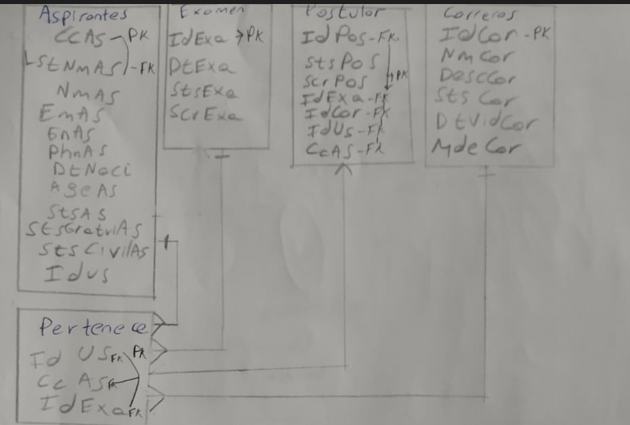 Aspirantes
CcAs - PK
LstNmAs) - FK
NmAS
EmAs
GnAs
PhnAs
DtNaci
AgeAs
StsAs
StsGratuiAs
Sts CivilAs
IdUs
Examen
IdExa → PK
DtExa
StsExa
ScrExa
Postular
IdPos - FK
StsPos
ScrPos
PK
IdExa - FK
IdCor - FK
IdUs - FK
CcAS - FK
Carreras
IdCar - PK
NmCar
DescCar
Sts Car
DtVidCar
MdeCar
Pertenece
Id US FK PK
Cc AS FK
IdExa FK